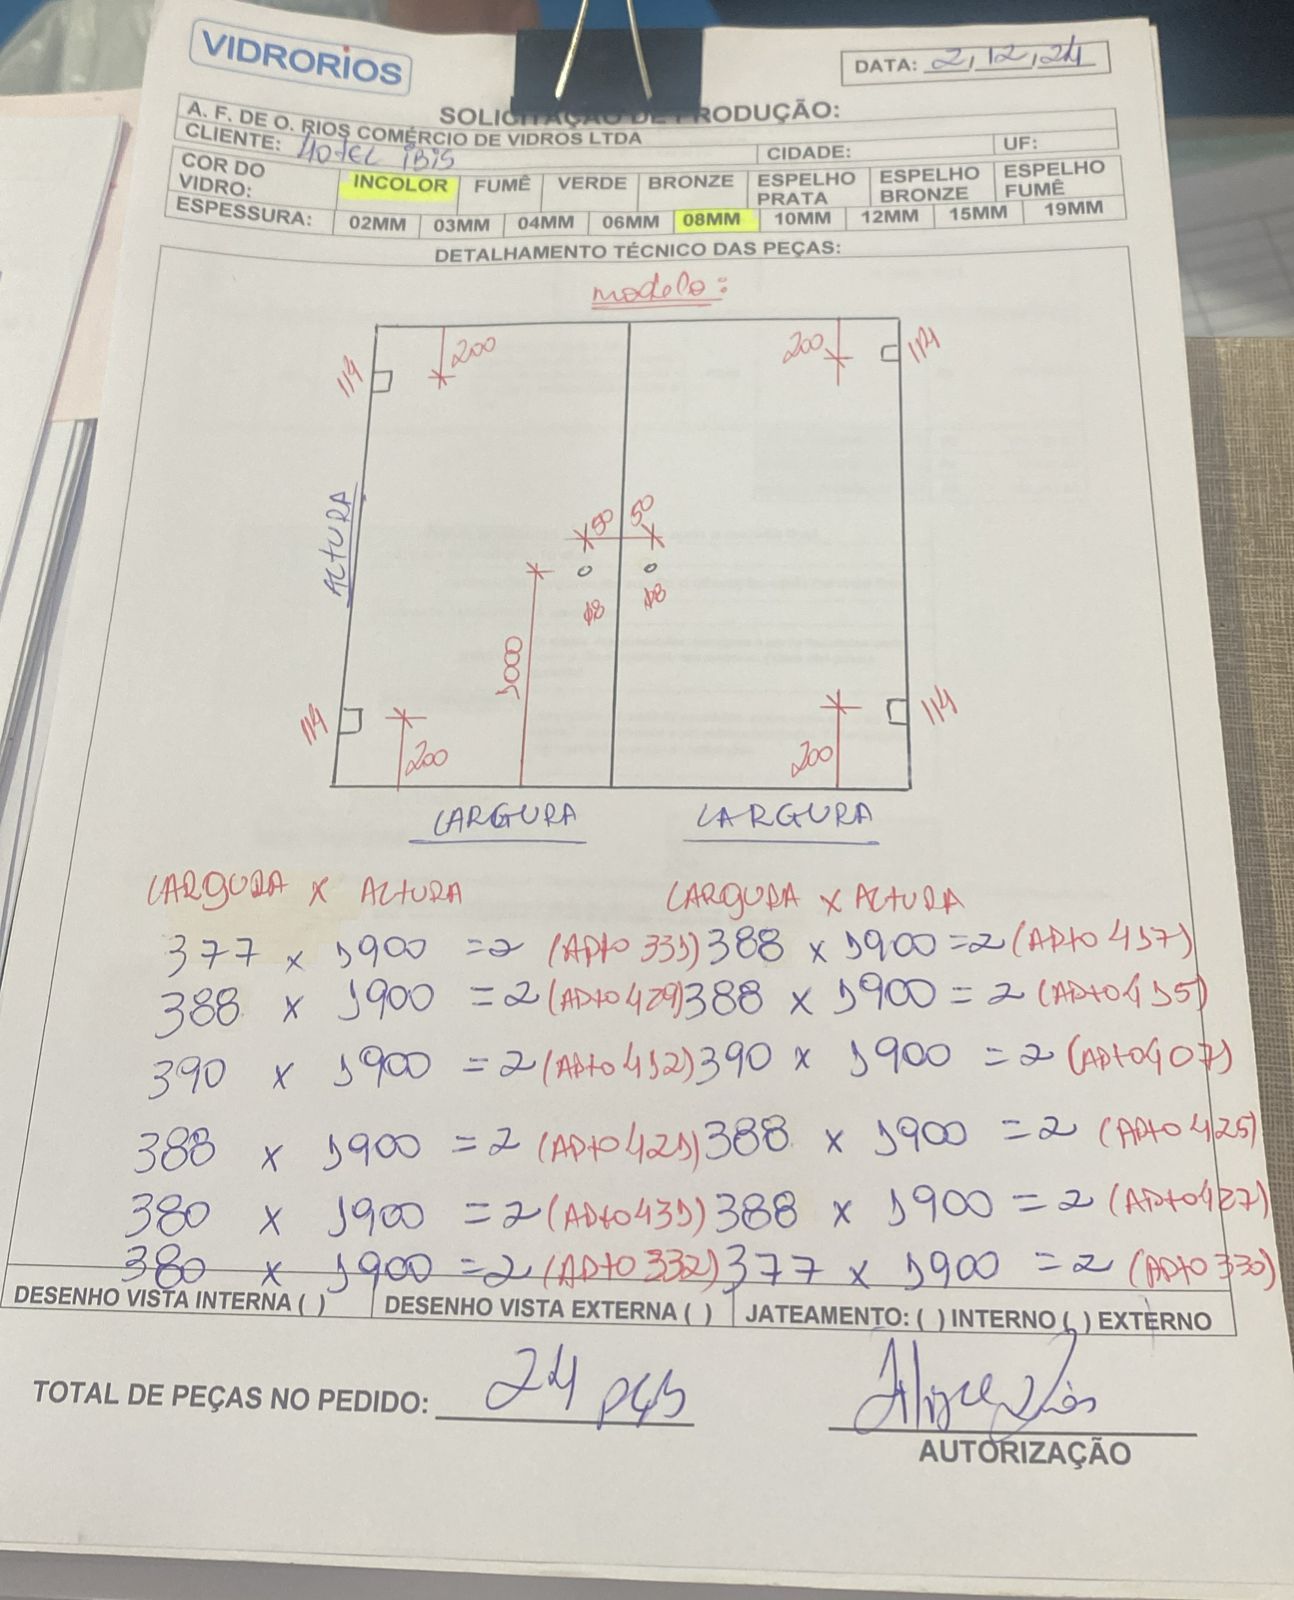 VIDRORIOS
DATA: 2,12,24
SOLICITAÇÃO DE PRODUÇÃO:
A. F. DE O. RIOS COMÉRCIO DE VIDROS LTDA
CLIENTE: Hotel iBiS CIDADE: UF:
COR DO VIDRO: INCOLOR FUMÊ VERDE BRONZE ESPELHO PRATA ESPELHO BRONZE ESPELHO FUMÊ
ESPESSURA: 02MM 03MM 04MM 06MM 08MM 10MM 12MM 15MM 19MM
DETALHAMENTO TÉCNICO DAS PEÇAS:
modelo:
114 200 200 114
ALTURA
50 50
1000 Ø8 Ø8
114 200 200 114
LARGURA LARGURA
LARGURA X ALTURA LARGURA X ALTURA
377 x 1900 = 2 (APto 331) 388 x 1900 = 2 (APto 417)
388 x 1900 = 2 (APto 429) 388 x 1900 = 2 (APto 415)
390 x 1900 = 2 (APto 412) 390 x 1900 = 2 (APto 407)
388 x 1900 = 2 (APto 421) 388 x 1900 = 2 (APto 425)
380 x 1900 = 2 (APto 431) 388 x 1900 = 2 (APto 427)
380 x 1900 = 2 (APto 332) 377 x 1900 = 2 (APto 330)
DESENHO VISTA INTERNA ( ) DESENHO VISTA EXTERNA ( ) JATEAMENTO: ( ) INTERNO ( ) EXTERNO
TOTAL DE PEÇAS NO PEDIDO: 24 pçs
AUTORIZAÇÃO